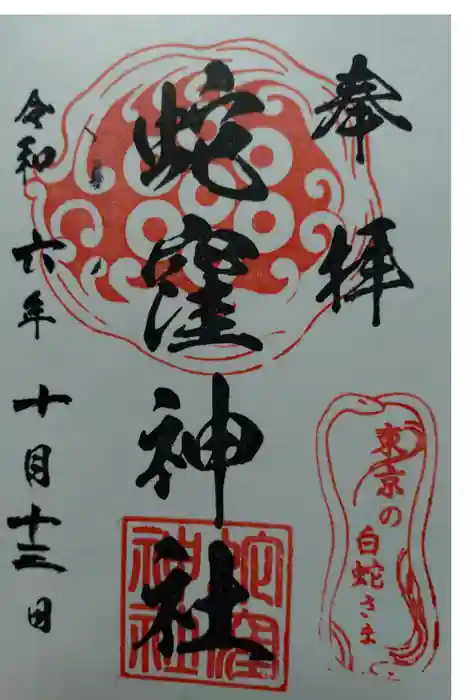 奉拝
東京の
白蛇さま
蛇窪神社
蛇窪
神社
令和六年十月十三日